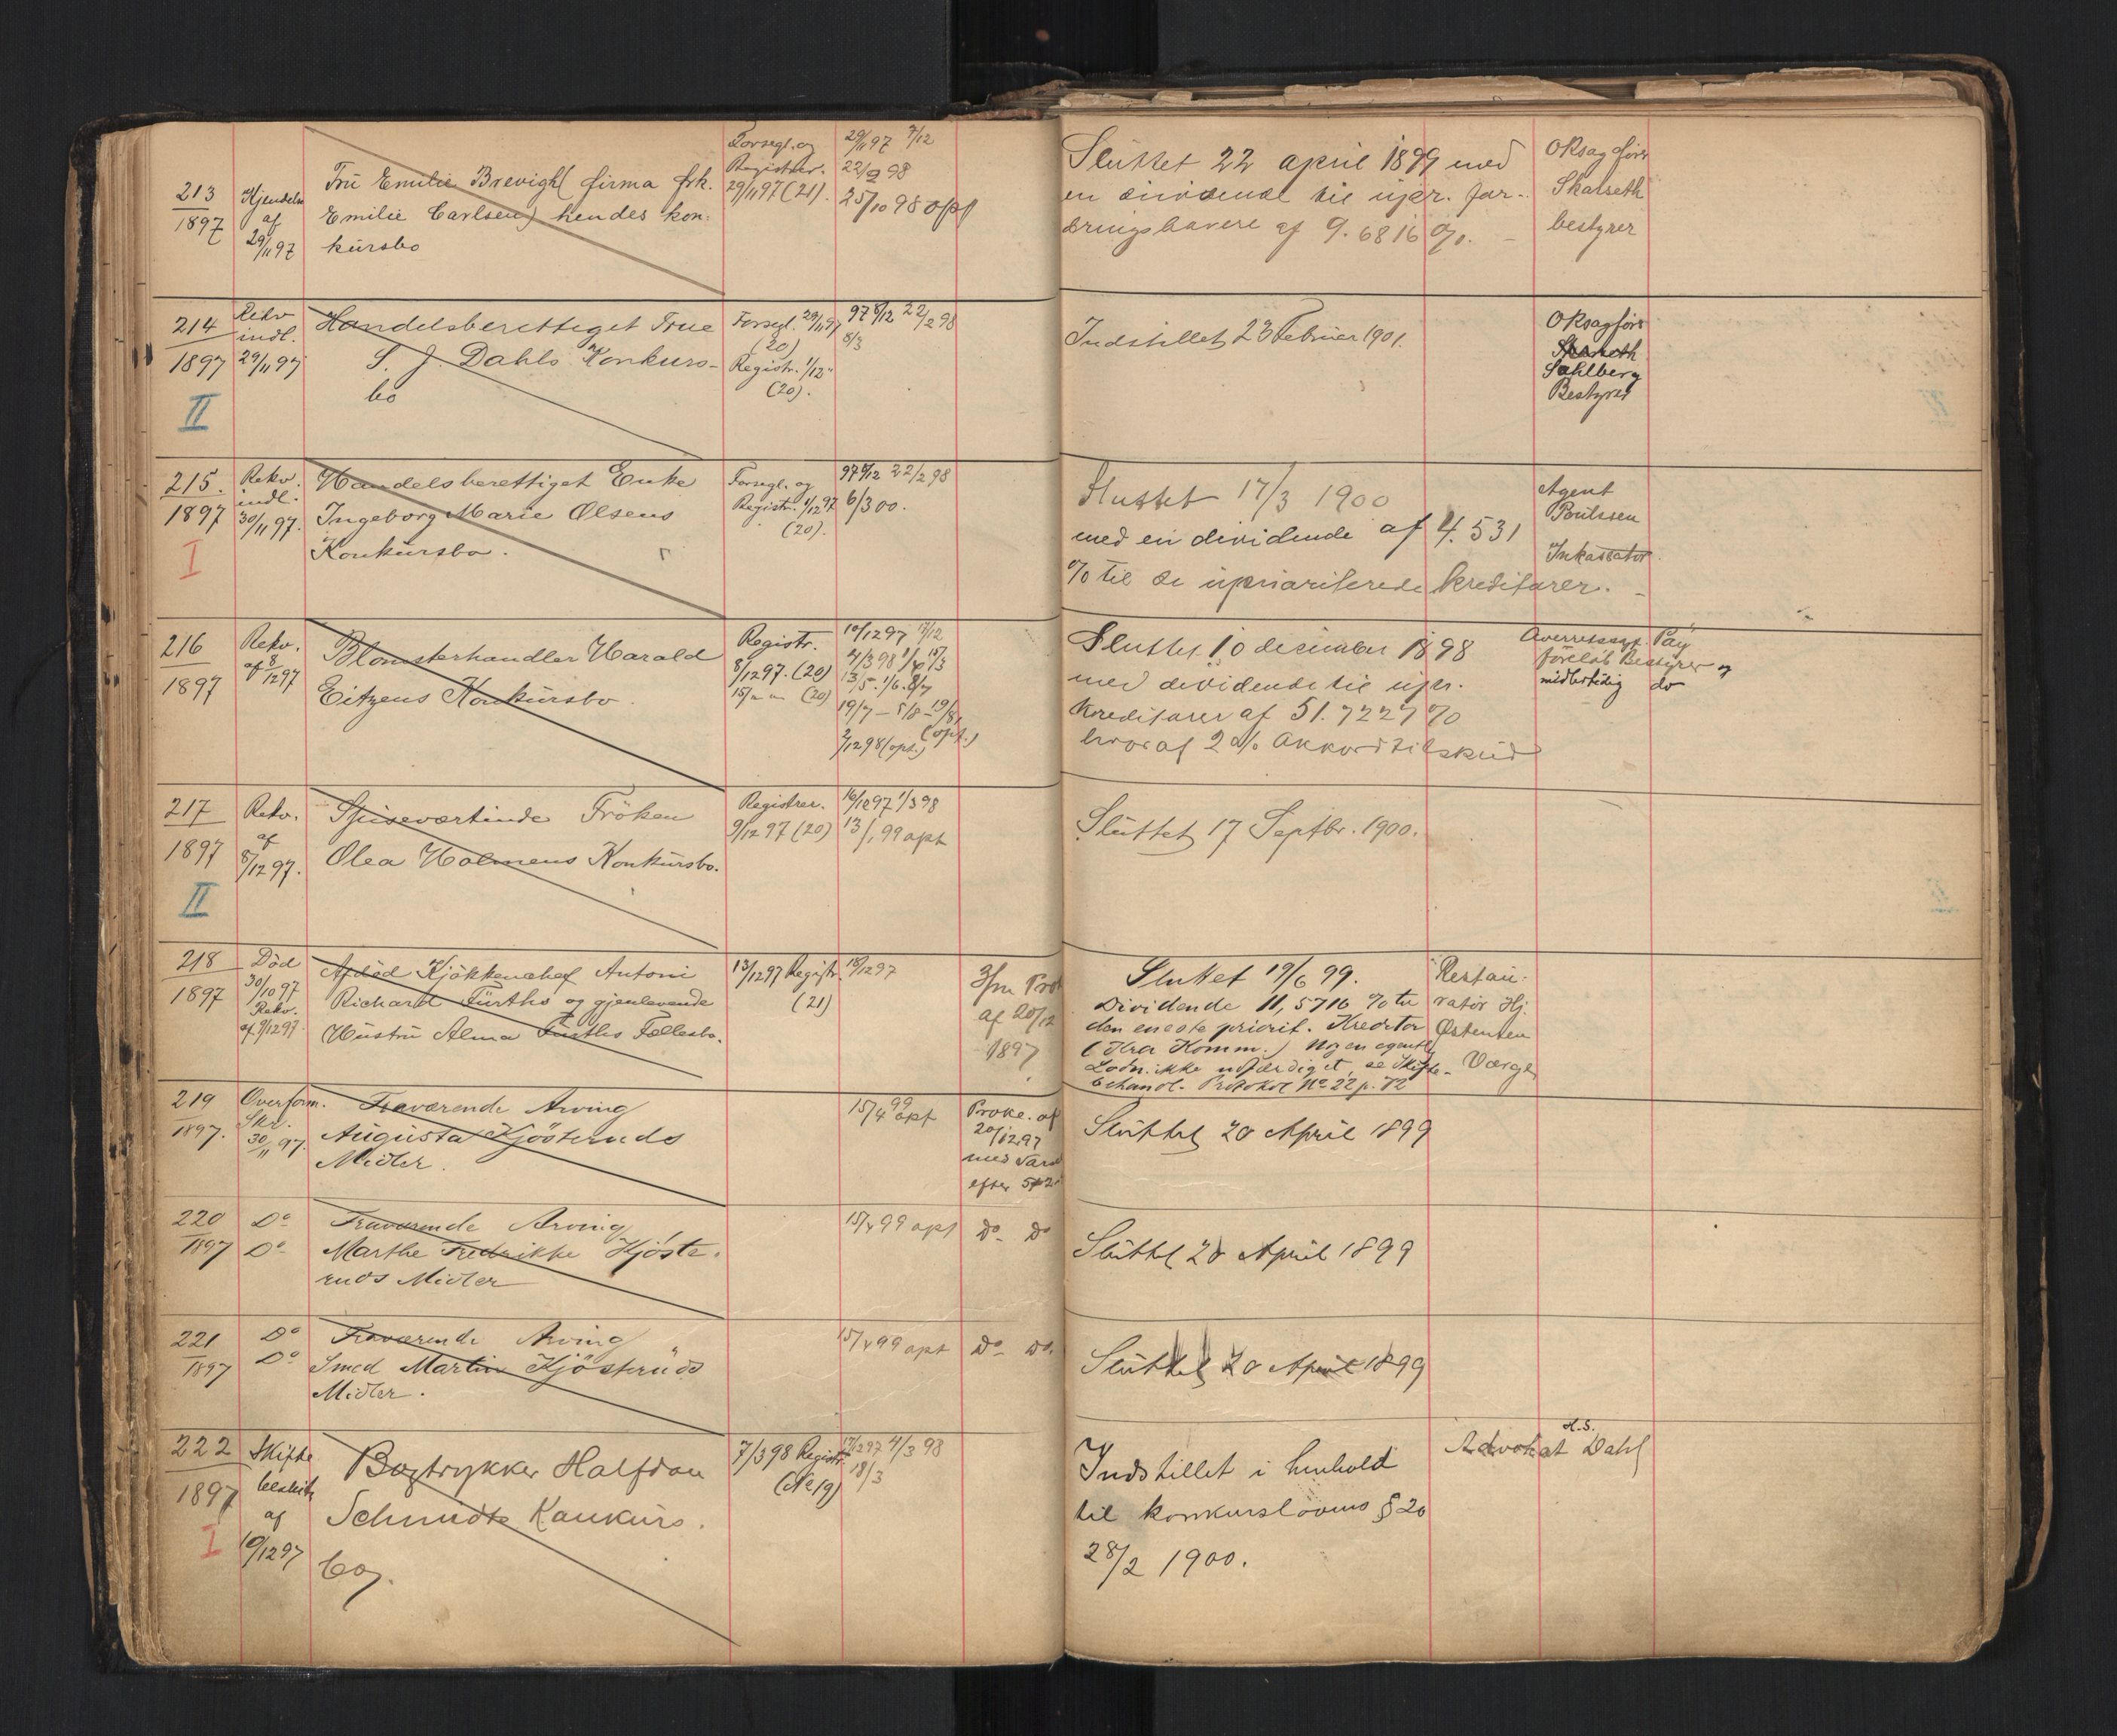 213
1897
Kjendelse
af
29/11 97
Fru Emilie Brevigh( firma frk.
Emilie Carlsen) hendes kon-
kursbo
Forsegl. og
Registrer.
29/11 97 (21).
29/11 97 7/12
22/2 98
25/10 98 opt
Sluttet 22 april 1899 med
en dividende til upr. for-
dringshavere af 9.6816 %.
Oksagfører
Skarseth
bestyrer
214
1897
II
Rekv
indl.
29/11 97
Handelsberettiget Frue
S. J. Dahls Konkurs-
bo
Forsegl. 29/11 97
(20)
Registr. 1/12
(20).
97 8/12 22/2 98
8/3
Indstillet 23 Februar 1901.
Oksagfører
Sahlberg
Bestyrer
215.
1897
I
Rekv.
indl.
30/11 97.
Handelsberettiget Enke
Ingeborg Marie Olsens
Konkursbo.
Forsegl. og
Registr. 1/12 97
(20).
22/2 98
6/3 00.
Sluttet 17/3 1900
med en dividende af 4.531
% til de upriariterede kreditorer.
Agent
Poulssen
Inkassator.
216
1897
Rekv.
af 8/12 97
Blomsterhandler Harald
Eitzens Konkursbo.
Registr.
8/12 97. (20)
15/" " (20)
10/12 97 17/12
4/3 98 1/4 15/3
13/5. 1/6. 8/7
19/7 - 5/8 - 19/8
(opt.)
2/12 98 (opt.)
Sluttet 10 december 1898
med dividende til upr.
Kreditorer af 51.7227 %
hvoraf 2 % Akkordtilskud
Overretssagf. Pay
foreløb Bestyrer og
midlertidig do
217
1897
II
Rekv.
af
8/12 97.
Spiseværtinde Fröken
Olea Holmens Konkursbo.
Registrer.
9/12 97 (20)
16/12 97 1/3 98
13/1 99 opt
Sluttet 17 Septbr. 1900.
218
1897
Död
30/10 97
Rekv.
af 9/12 97
Afdöd Kjökkenchef Antoni
Richard Fürths og gjenlevende
Hustru Alma Fürths Fællesbo.
13/12 97 Registr.
(21)
18/12 97
3/m Prok
af 20/12
1897
Sluttet 19/6 99.
Dividende 11,5716 % til
den eneste priorit. Kreditor
(Kra Komm.) Nogen egentl.
Lodn. ikke udfærdiget, se Skifte-
behandl. Protokol No 22 p. 72
Restau-
ratör Hj.
Østensen
Værge
219
1897.
Overform.
Skr.
30/11 97.
Fraværende Arving
Augusta Kjösteruds
Midler.
15/4 99 opt
Prokl. af
20/12 97
med Varsel
Sluttet 20 April 1899
220
1897
Do
Do
Fraværende Arving
Marthe Fredrikke Kjöste-
ruds Midler
15/4 99 opt
Do Do
Sluttet 20 April 1899
221
1897
Do
Do
Fraværende Arving
Smed Martin Kjösteruds
Midler.
15/4 99 opt
Do Do.
Sluttet 20 April 1899
222
1897
I
Skifte
beslutn
af
10/12 97
Bogtrykker Halfdan
Schmidts Konkurs.
bo.
7/3 98 Registr.
(No 19)
17/12 97 4/3 98
18/3
Indstillet i henhold
til konkurslovens § 20
28/2 1900.
H.S.
Advokat Dahl